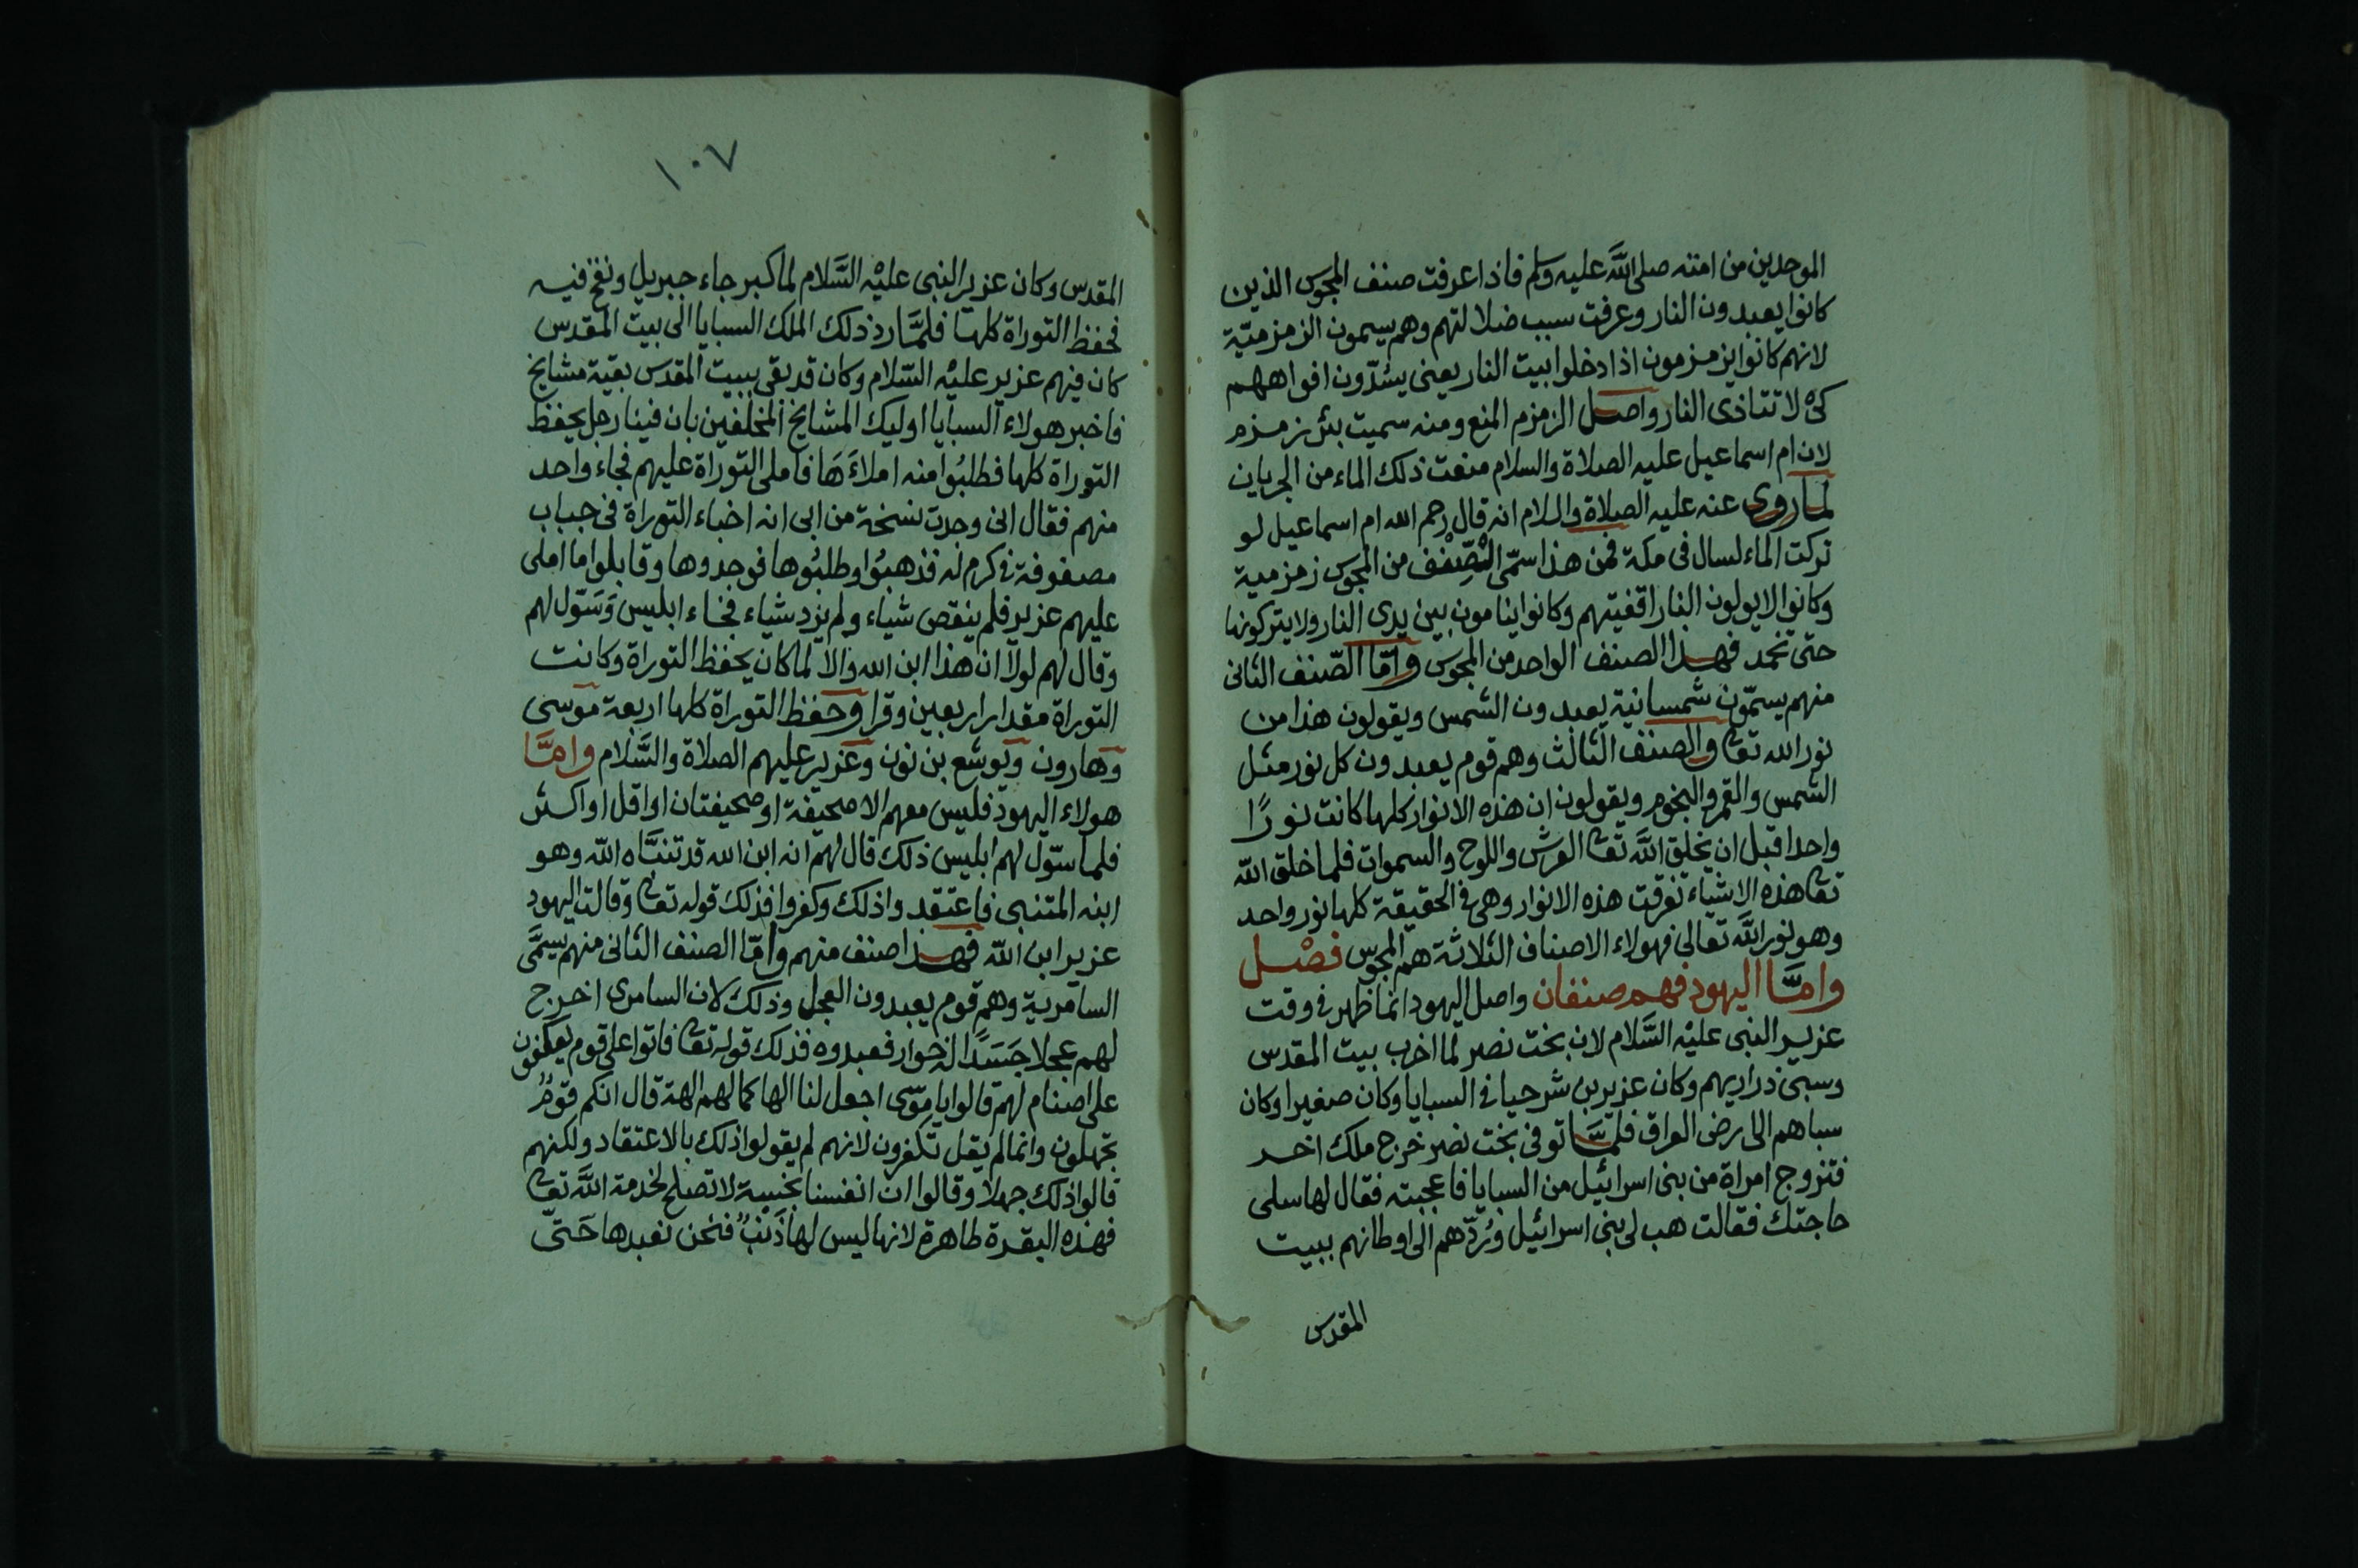 الموحدين من امته صلى الله عليه وسلم فاذا عرفت صنف المجوس الذين
كانوا يعبدون النار وعرفت سبب ضلالتهم وهم يسمون الزمزمية
لانهم كانوا يزمزمون اذا دخلوا بيت النار يعنى يسُدّون افواههم
كى لا تتاذى النار واصل الزمزم المنع ومنه سميت بئر زمزم
لان ام اسماعيل عليه الصلاة والسلام منعت ذلك الماء من الجريان
لما روى عنه عليه الصلاة والسلام انه قال رحم الله ام اسماعيل لو
تركت الماء لسال فى مكة فمن هذا سمّى الصّنف من المجوس زمزمية
وكانوا لا يولون النار اقفيتهم وكانوا ينامون بين يدى النار ولا يتركونها
حتى تخمد فهذا الصنف الواحد من المجوس وامّا الصّنف الثانى
منهم يسمّون شمسانية يعبدون الشمس ويقولون هذا من
نور الله تعا والصنف الثالث وهم قوم يعبدون كل نور مثل
الشمس والقمر والنجوم ويقولون ان هذه الانوار كلها كانت نورًا
واحدا قبل ان يخلق الله تعا العرش واللوح والسموات فلما خلق الله
تعا هذه الاشياء تفرقت هذه الانوار وهى فى الحقيقة كلها نور واحد
وهو نور الله تعالى فهولاء الاصناف الثلاثة هم المجوس فصْل
وامَّا اليهود فهم صنفان واصل اليهود انما ظهر فى وقت
عزير النبى عليْه السَّلام لان بخت نصر لما اخرب بيت المقدس
وسبى ذراريهم وكان عزير بن شرحيا فى السبايا وكان صغيرا وكان
سباهم الى ارض العراق فلمَّا توفى بخت نصر خرج ملك اخر
فتزوج امراة من بنى اسرائيل من السبايا فاعجبته فقال لها سلى
حاجتك فقالت هب لى بنى اسرائيل ورُدّهم الى اوطانهم ببيت
المقدس
١٠٧
المقدس وكان عزير النبى عليْه السَّلام لما كبر جاء جبريل ونفخ فيه
فحفظ التوراة كلها فلمَّا رد ذلك الملك السبايا الى بيت المقدس
كان فيهم عزير عليْه السّلام وكان قد بقى ببيت المقدس بقية مشايخ
فاخبر هولاء السبايا اوليك المشايخ المخلفين بان فينا رجل يحفظ
التوراة كلها فطلبُوا منه املاءَهَا فاملى التوراة عليهم فجاء واحد
منهم فقال انى وجدت نسخة من ابى انه اخباء التوراة فى جباب
مصفوفة فى كرم له فذهبُوا وطلبُوها فوجدوها وقابلوا ما املى
عليهم عزير فلم ينقص شياء ولم يزد شياء فجاء ابليس وَسَوّل لهم
وقال لهم لولا ان هذا ابن الله والا لما كان يحفظ التوراة وكانت
التوراة مقدار اربعين وقرا وحفظ التوراة كلها اربعة موسى
وهارون ويوشع بن نون وعزير عليهم الصلاة والسَّلام وامَّا
هولاء اليهود فليس معهم الا صحيفة او صحيفتان او اقل او اكثر
فلما سوّل لهم ابليس ذلك قال لهم انه ابن الله قد تبنَّاه الله وهو
ابنه المتنبى فاعتقدوا ذلك وكفروا فذلك قوله تعا وقالت اليهود
عزير ابن الله فهذا صنف منهم وامّا الصنف الثانى منهم يسمَّى
السامرية وهم قوم يعبدون العجل وذلك لان السامرى اخرج
لهم عجلا جَسَدًا له خوار فعبدوه فذلك قوله تعا فاتوا على قوم يعكفون
على اصنام لهم قالوا يا موسى اجعل لنا الها كما لهم الهة قال انكم قومٌ
تجهلون وانما لم يقل تكفرون لانهم لم يقولوا ذلك بالاعتقاد ولكنهم
قالوا ذلك جهلا وقالوا ان انفسنا نجسة لا تصلح لخدمة الله تعا
فهذه البقرة طاهرة لانها ليس لها ذَنْبٌ فنحن نعبدها حَتّى